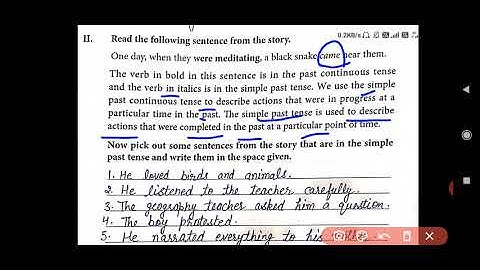 II. Read the following sentence from the story.
One day, when they were meditating, a black snake came near them.
The verb in bold in this sentence is in the past continuous tense
and the verb in italics is in the simple past tense. We use the simple
past continuous tense to describe actions that were in progress at a
particular time in the past. The simple past tense is used to describe
actions that were completed in the past at a particular point of time.
Now pick out some sentences from the story that are in the simple
past tense and write them in the space given.
1. He loved birds and animals.
2. He listened to the teacher carefully.
3. The geography teacher asked him a question.
4. The boy protested.
5. He narrated everything to his